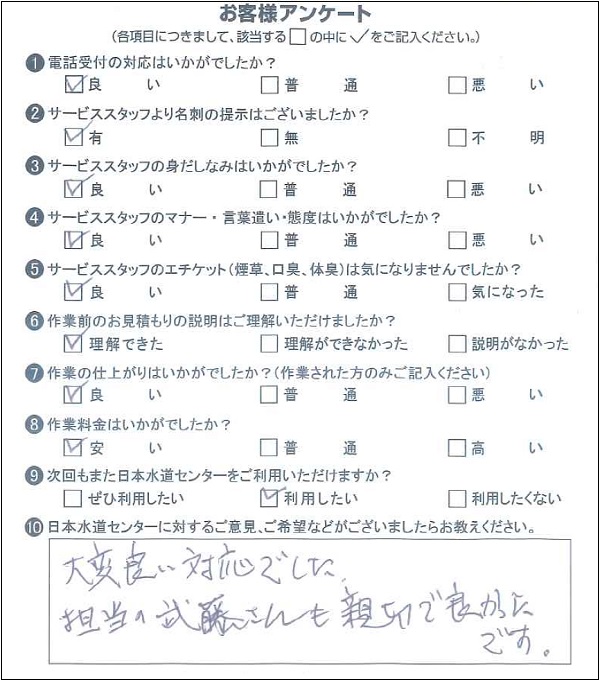 お客様アンケート
(各項目につきまして、該当する□の中に✓をご記入ください。)
❶電話受付の対応はいかがでしたか?
☑良 い □普 通 □悪 い
❷サービススタッフより名刺の提示はございましたか?
☑有 □無 □不 明
❸サービススタッフの身だしなみはいかがでしたか?
☑良 い □普 通 □悪 い
❹サービススタッフのマナー・言葉遣い・態度はいかがでしたか?
☑良 い □普 通 □悪 い
❺サービススタッフのエチケット(煙草、口臭、体臭)は気になりませんでしたか?
☑良 い □普 通 □気になった
❻作業前のお見積もりの説明はご理解いただけましたか?
☑理解できた □理解ができなかった □説明がなかった
❼作業の仕上がりはいかがでしたか?(作業された方のみご記入ください)
☑良 い □普 通 □悪 い
❽作業料金はいかがでしたか?
☑安 い □普 通 □高 い
❾次回もまた日本水道センターをご利用いただけますか?
□ぜひ利用したい ☑利用したい □利用したくない
❿日本水道センターに対するご意見、ご希望などがございましたらお教えください。
大変良い対応でした、
担当の武藤さんも親切で良かった
です。